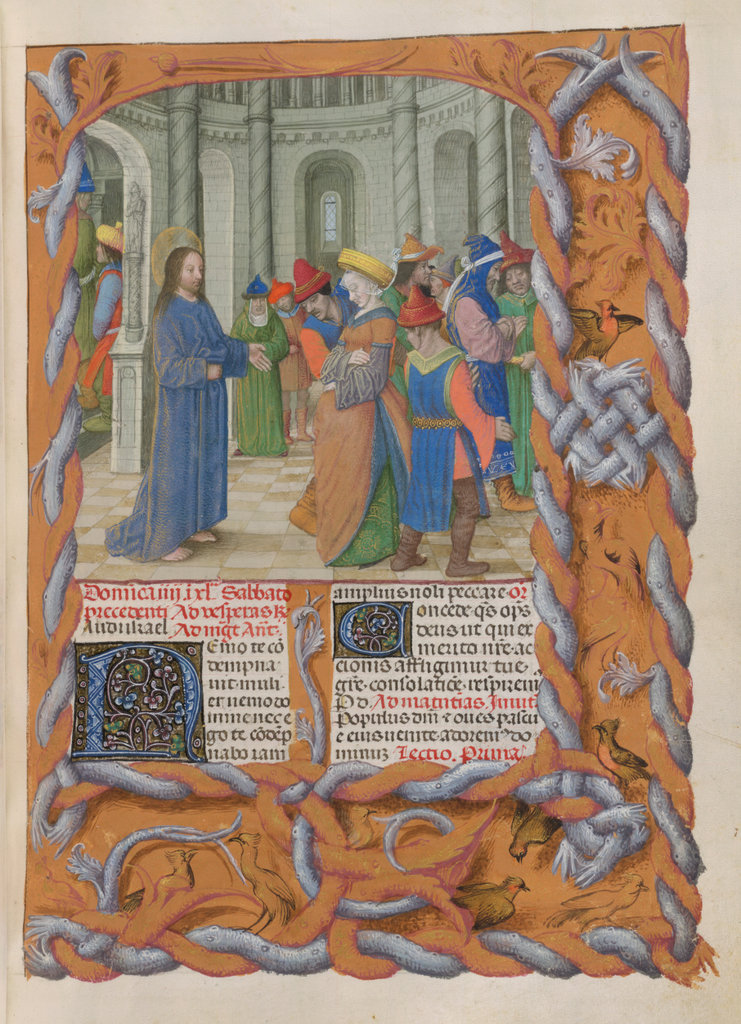 Dominica iiij. xl͞e Sabbato
precedenti Ad vesperas ℟
Audi israel Ad mag͞t Añt.
Nemo te cõ
dempna
uit muli
er nemo do
mine nec e
go te cõdẽp
nabo iam
amplius noli peccare or
Concede q̃s op̃s
deus ut qui ex
merito nr̃e ac
cionis affligimur tue
gr̃e consolatiõe respirem
P d. Ad matutinas. Inuit
Populus dñi & oues pascu
e eius uenite adorem do
minuz Lectio. Prima